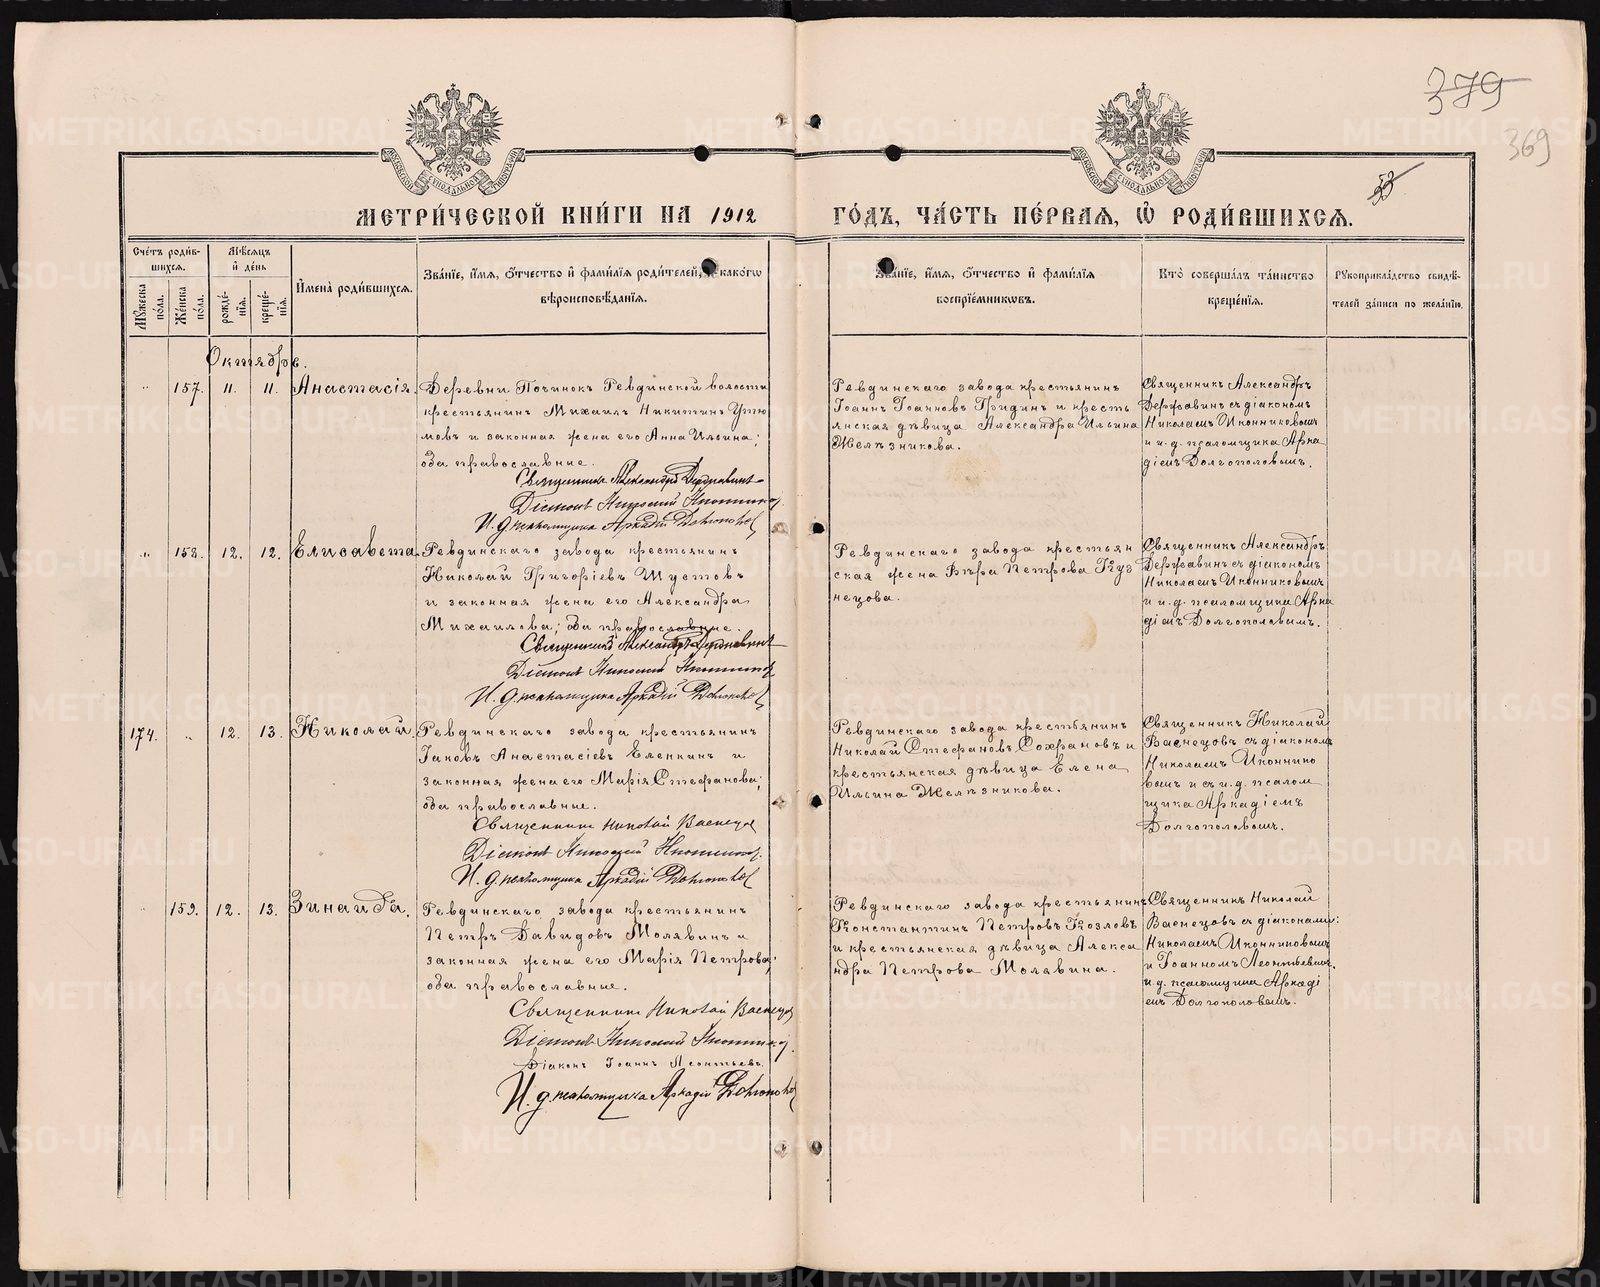 379
369
53
МЕТРИ́ЧЕСКОЙ КНИ́ГИ НА 1912 ГО́ДЪ, ЧА́СТЬ ПЕ́РВАЯ, Ѡ РОДИ́ВШИХСЯ.
Сче́тъ роди́в-
шихся.
Мѣ́сяцъ
и҆ де́нь
Мꙋжеска по́ла.
Же́нска по́ла.
рожде́-
нїѧ.
креще́-
нїѧ.
И҆мена̀ роди́вшихся.
Зва́нїе, и҆́мѧ, ѻ҆́тчество и҆ фами́лїѧ роди́телей, и҆ како́гѡ
вѣроисповѣ́данїѧ.
Зва́нїе, и҆́мѧ, ѻ҆́тчество и҆ фами́лїѧ
воспрїе́мникѡвъ.
Кто̀ соверша́лъ та́инство
креще́нїѧ.
Рꙋкоприкла́дство свидѣ́-
телей за́писи по жела́нїю.
Октябрь.
" 157. 11. 11. Анастасія.
Деревни Починокъ Ревдинской волости
крестьянинъ Михаилъ Никитинъ Утю
мовъ и законная жена его Анна Ильина;
оба православные.
Священникъ Александръ Державинъ
Діаконъ Николай Иконников
И. д. псаломщика Аркадій Долгополов
Ревдинскаго завода крестьянинъ
Іоаннъ Іоанновъ Гридинъ и кресть
янская дѣвица Александра Ильина
Желѣзникова.
Священникъ Александръ
Державинъ съ діакономъ
Николаемъ Иконниковымъ
и и. д. псаломщика Арка
діемъ Долгополовымъ.
" 158. 12. 12. Елисавета.
Ревдинскаго завода крестьянинъ
Николай Григоріевъ Шустовъ
и законная жена его Александра
Михаилова; оба православные.
Священникъ Александръ Державинъ
Діаконъ Николай Иконников
И. д. псаломщика Аркадій Долгополов
Ревдинскаго завода крестьян
ская жена Вѣра Петрова Куз
нецова.
Священникъ Александръ
Державинъ съ діакономъ
Николаемъ Иконниковымъ
и и. д. псаломщика Арка
діемъ Долгополовымъ.
174. " 12. 13. Николай.
Ревдинскаго завода крестьянинъ
Іаковъ Анастасіевъ Еленкинъ и
законная жена его Марія Стефанова;
оба православные.
Священникъ Николай Васнецов
Діаконъ Николай Иконников.
И. д. псаломщика Аркадій Долгополов
Ревдинскаго завода крестьянинъ
Николай Стефановъ Сохрановъ и
крестьянская дѣвица Елена
Ильина Желѣзникова.
Священникъ Николай
Васнецовъ съ діакономъ
Николаемъ Иконнико
вымъ и съ и. д. псалом
щика Аркадіемъ
Долгополовымъ.
159. 12. 13. Зинаида.
Ревдинскаго завода крестьянинъ
Петръ Давидовъ Молявинъ и
законная жена его Марія Петрова;
оба православные.
Священникъ Николай Васнецов
Діаконъ Николай Иконников.
Діаконъ Іоаннъ Леонтьевъ.
И. д. псаломщика Аркадій Долгополов
Ревдинскаго завода крестьянинъ
Константинъ Петровъ Козловъ
и крестьянская дѣвица Алекса
ндра Петрова Молявина.
Священникъ Николай
Васнецовъ съ діаконами:
Николаемъ Иконниковымъ
и Іоанномъ Леонтьевымъ,
и д. псаломщика Аркаді
емъ Долгополовымъ.